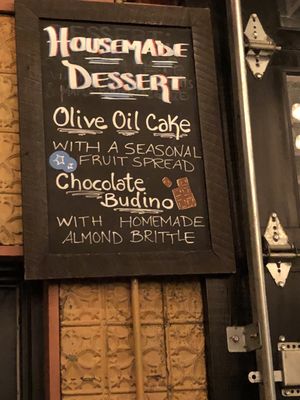 Housemade
Dessert
Olive Oil Cake
WITH A SEASONAL
FRUIT SPREAD
Chocolate
Budino
WITH HOMEMADE
ALMOND BRITTLE